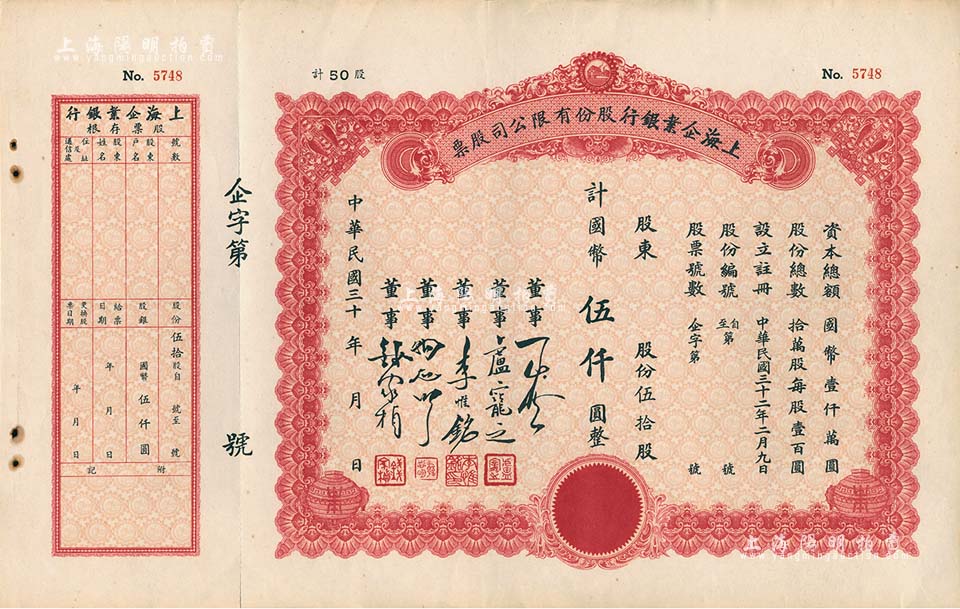 上海陽明拍賣
www.yangmingauction.com
No. 5748
計 50 股
No. 5748
上海企業銀行股份有限公司股票
資本總額 國幣壹仟萬圓
股份總數 拾萬股每股壹百圓
設立註冊 中華民國三十二年二月九日
股份編號 自至第 號
股票號數 企字第 號
股東 股份伍拾股
計國幣伍仟圓整
董事
董事 盧寵之
董事 李惟銘
董事
董事
中華民國三十 年 月 日
企字第 號
上海企業銀行
股票存根
號數
股東戶名
股東姓名
住址及通信處
股份 伍拾股自 號至 號
股銀 國幣 伍仟圓
給票日期 年 月 日
更換股票日期 年 月 日
附記
上海陽明拍賣
www.yangmingauction.com
上海陽明拍賣
www.yangmingauction.com